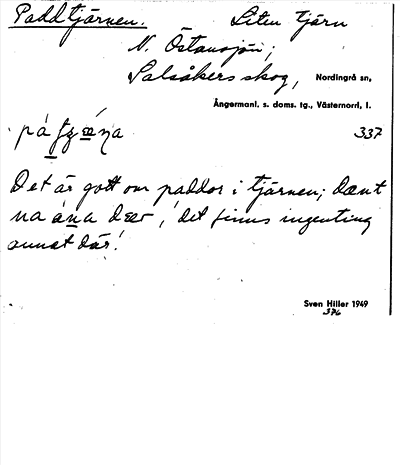 Paddtjärnen. Liten tjärn
N. Östansjön;
Salsåkers skog, Nordingrå sn,
Ångermanl. s. doms. tg., Västernorrl. l.
337
Det är gott om paddor i tjärnen; dænt
na ána dær, 'det finns ingenting
annat där'.
Sven Hiller 1949
376